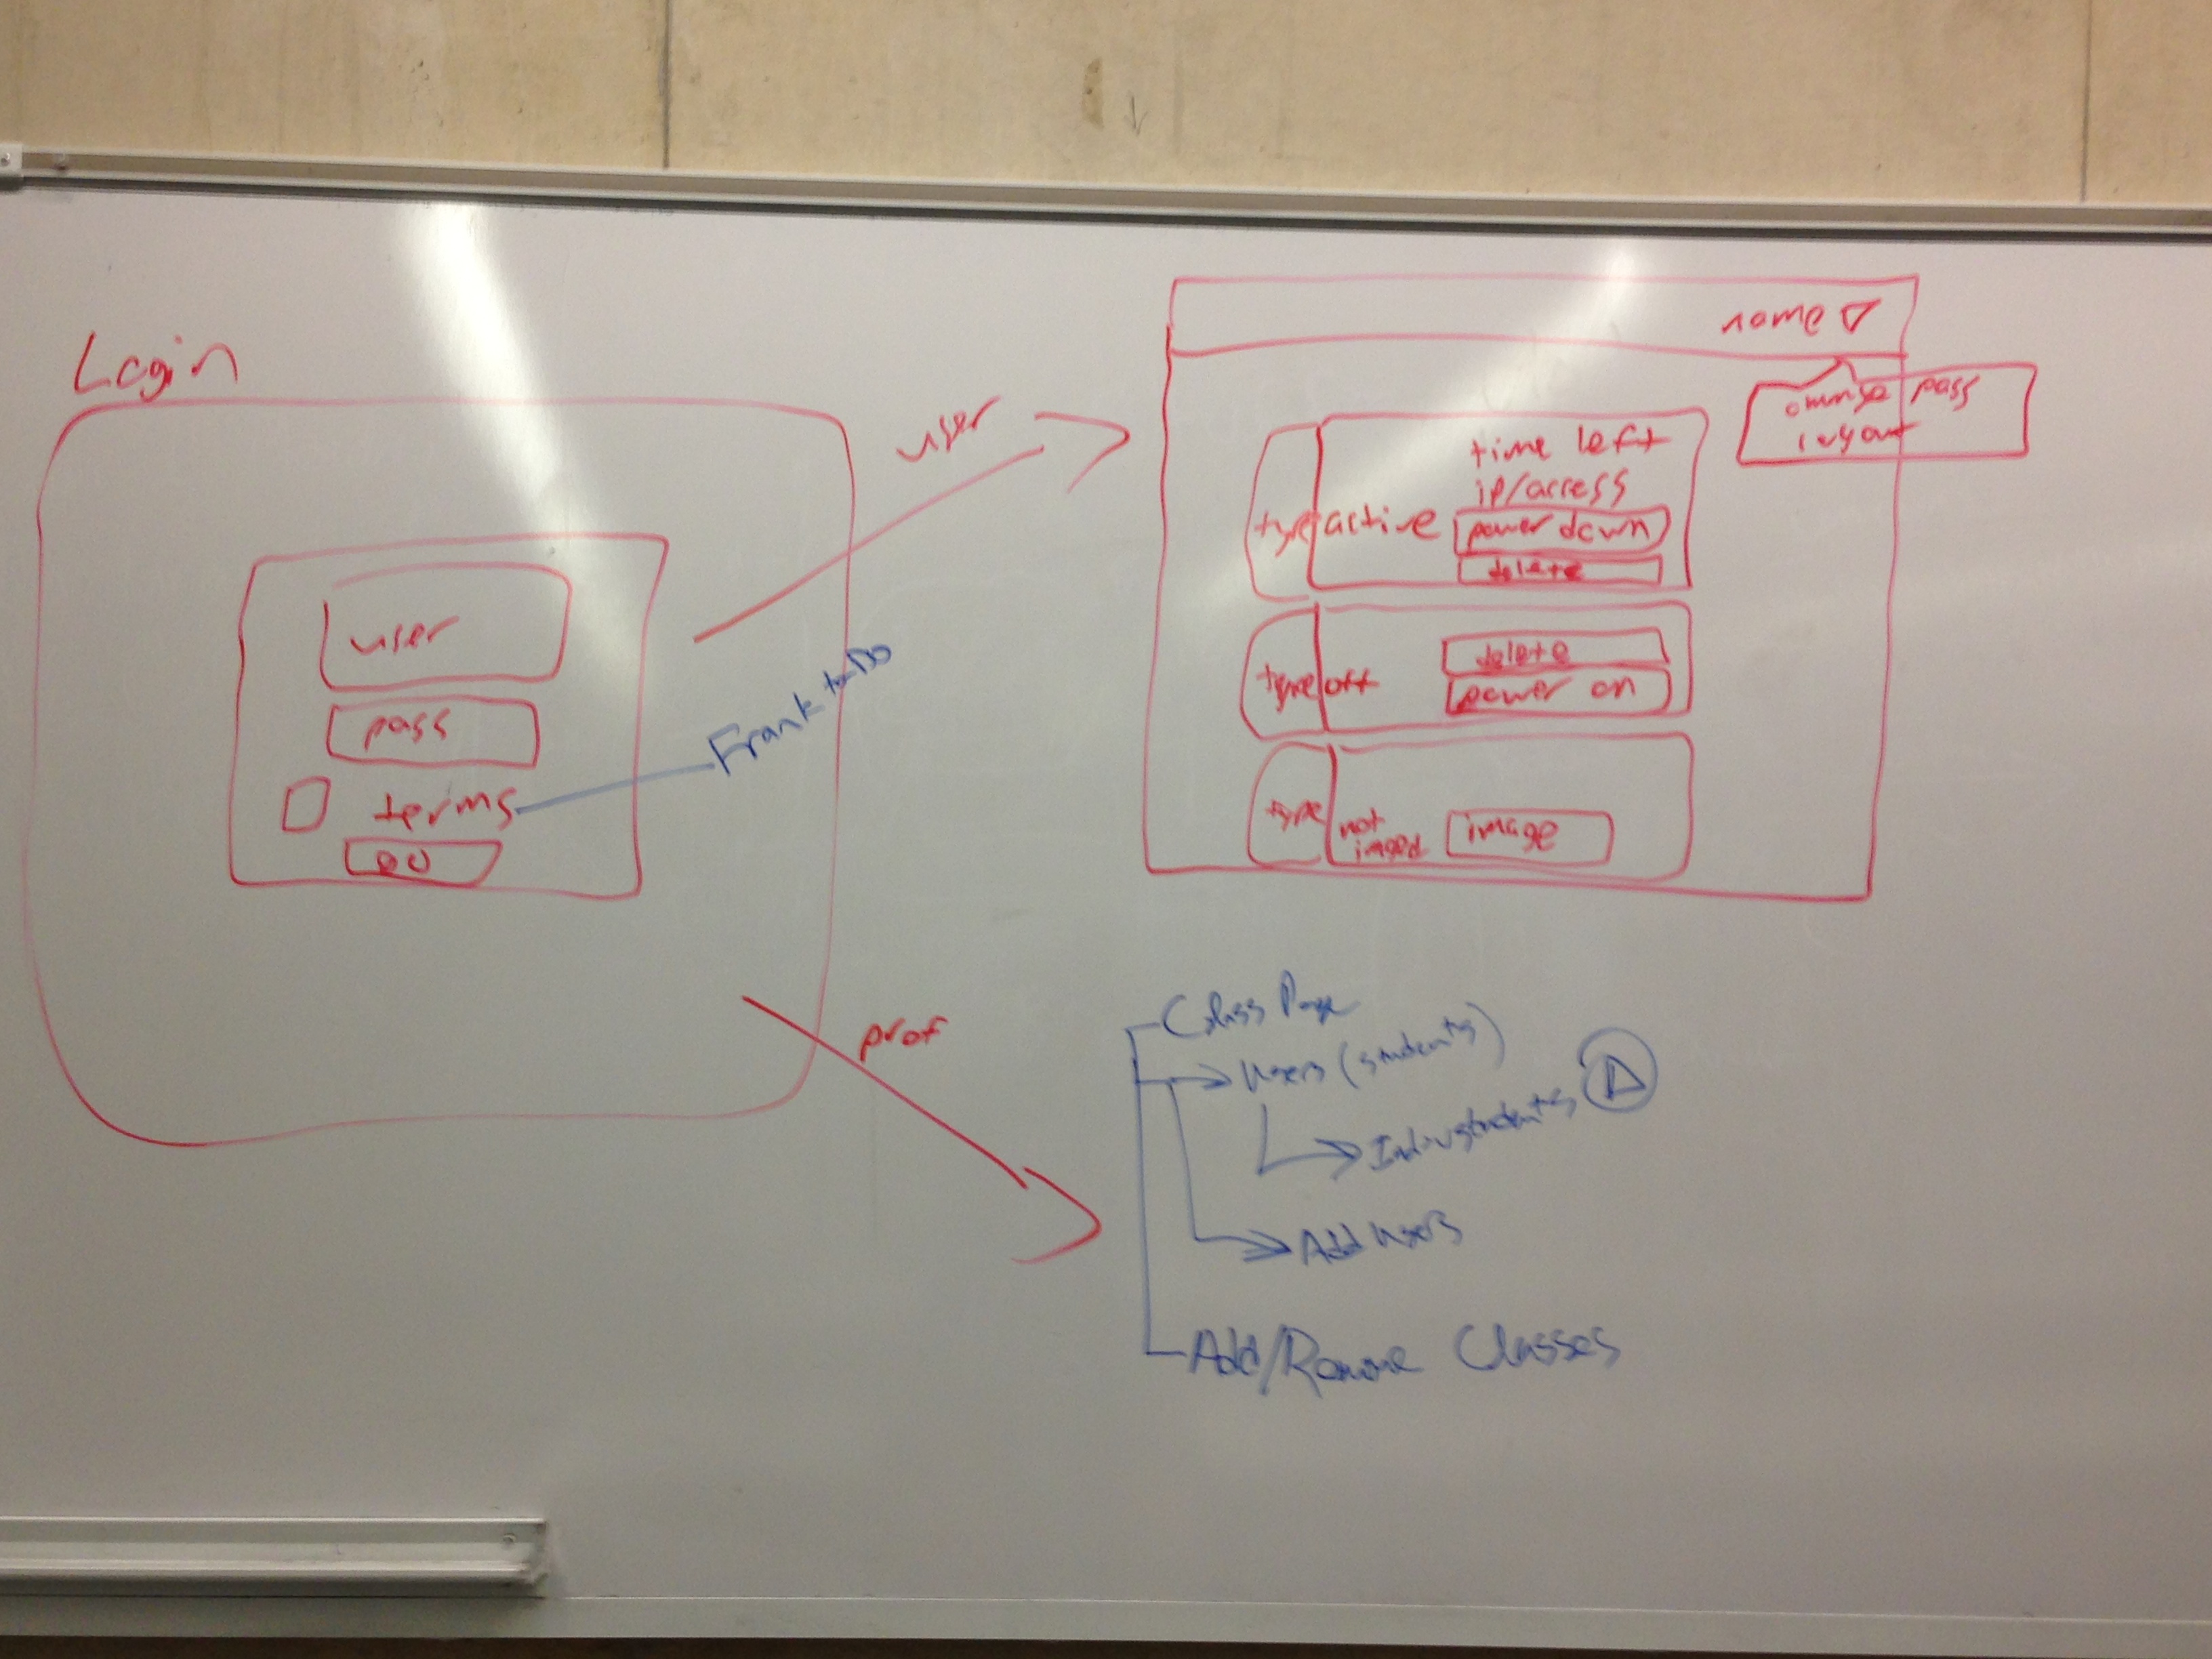 Login
user
pass
terms
go
Frank to Do
user
prof
name
change pass
layout
type
active
time left
ip/access
power down
delete
type
off
delete
power on
type
not
imaged
image
Class Page
Users (students)
Indiv students
Add users
Add/Remove Classes